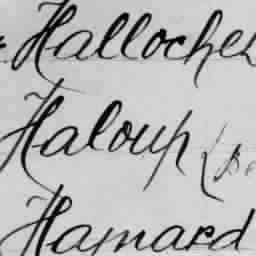 Hallochet
Haloup (Be
Hamard